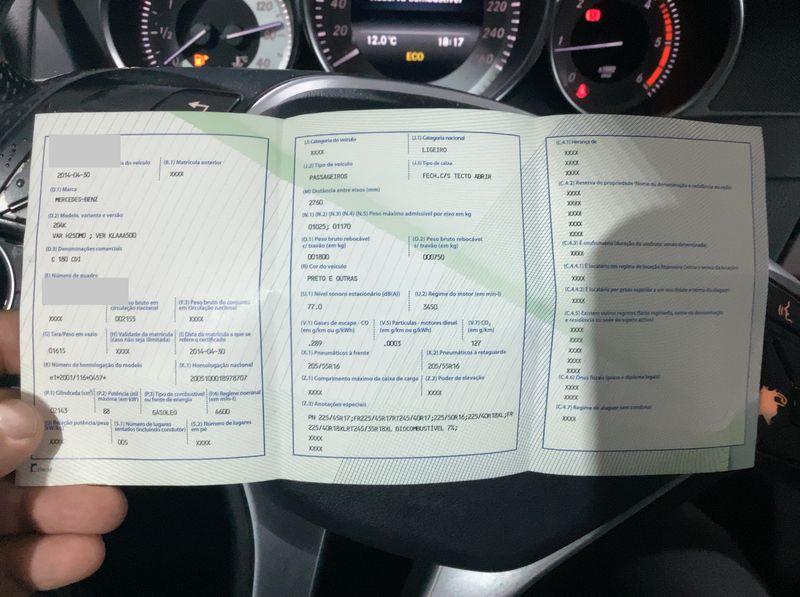 120
1/2
40
40
220
60
240
260
12.0°C
18:17
ECO
2
1
0
4
5
6
a do veículo
2014-04-30
(B.1) Matrícula anterior
XXXX
(D.1) Marca
MERCEDES-BENZ
(D.2) Modelo, variante e versão
204K
VAR H2S0M0 ; VER KLAAA500
(D.3) Denominações comerciais
C 180 CDI
(E) Número de quadro
so bruto em
circulação nacional
XXXX
002155
(F.3) Peso bruto do conjunto
em circulação nacional
XXXX
(G) Tara/Peso em vazio
01615
(H) Validade da matrícula
(caso não seja ilimitada)
XXXX
(I) Data da matrícula a que se
refere o certificado
2014-04-30
(K) Número de homologação do modelo
e1*2001/116*0457*
(X.1) Homologação nacional
2005100018978707
(P.1) Cilindrada (cm³)
02143
(P.2) Potência (útil
máxima) (em kW)
88
(P.3) Tipo de combustível
ou fonte de energia
GASOLEO
(P.4) Regime nominal
(em min-1)
4600
Relação potência/peso
XXXX
(S.1) Número de lugares
sentados (incluindo condutor)
005
(S.2) Número de lugares
em pé
XXXX
(J) Categoria do veículo
XXXX
(J.1) Categoria nacional
LIGEIRO
(J.2) Tipo de veículo
PASSAGEIROS
(J.3) Tipo de caixa
FECH.C/S TECTO ABRIR
(M) Distância entre eixos (mm)
2760
(N.1) (N.2) (N.3) (N.4) (N.5) Peso máximo admissível por eixo em kg
01025; 01170
(O.1) Peso bruto rebocável
c/ travão (em kg)
001800
(O.2) Peso bruto rebocável
s/ travão (em kg)
000750
(R) Cor do veículo
PRETO E OUTRAS
(U.1) Nível sonoro estacionário (dB(A))
77.0
(U.2) Regime do motor (em min-1)
3450
(V.1) Gases de escape - CO
(em g/km ou g/kWh)
.289
(V.5) Partículas - motores diesel
(em g/km ou g/kWh)
.0003
(V.7) CO₂
(em g/km)
127
(X.1) Pneumáticos à frente
205/55R16
(X.2) Pneumáticos à retaguarda
205/55R16
(Z.1) Comprimento máximo da caixa de carga
XXXX
(Z.2) Poder de elevação
XXXX
(Z.3) Anotações especiais
PN 225/45R17;FR225/45R17RT245/40R17;225/50R16;225/40R18XL;FR
225/40R18XLRT245/35R18XL BIOCOMBUSTÍVEL 7%;
XXXX
XXXX
(C.4.1) Herança de
XXXX
XXXX
XXXX
(C.4.2) Reserva de propriedade (Nome ou denominação e residência ou sede)
XXXX
XXXX
XXXX
XXXX
(C.4.3) É usufrutuário (duração do usufruto, sendo determinada)
XXXX
(C.4.4.1) É locatário em regime de locação financeira
XXXX
(C.4.4.2) É locatário por prazo superior a um ano
XXXX
(C.4.5) Existem outros registos
XXXX
XXXX
XXXX
XXXX
(C.4.6) Ónus fiscais (prazo e diploma legal)
XXXX
XXXX
(C.4.7) Regime de aluguer sem condutor
XXXX